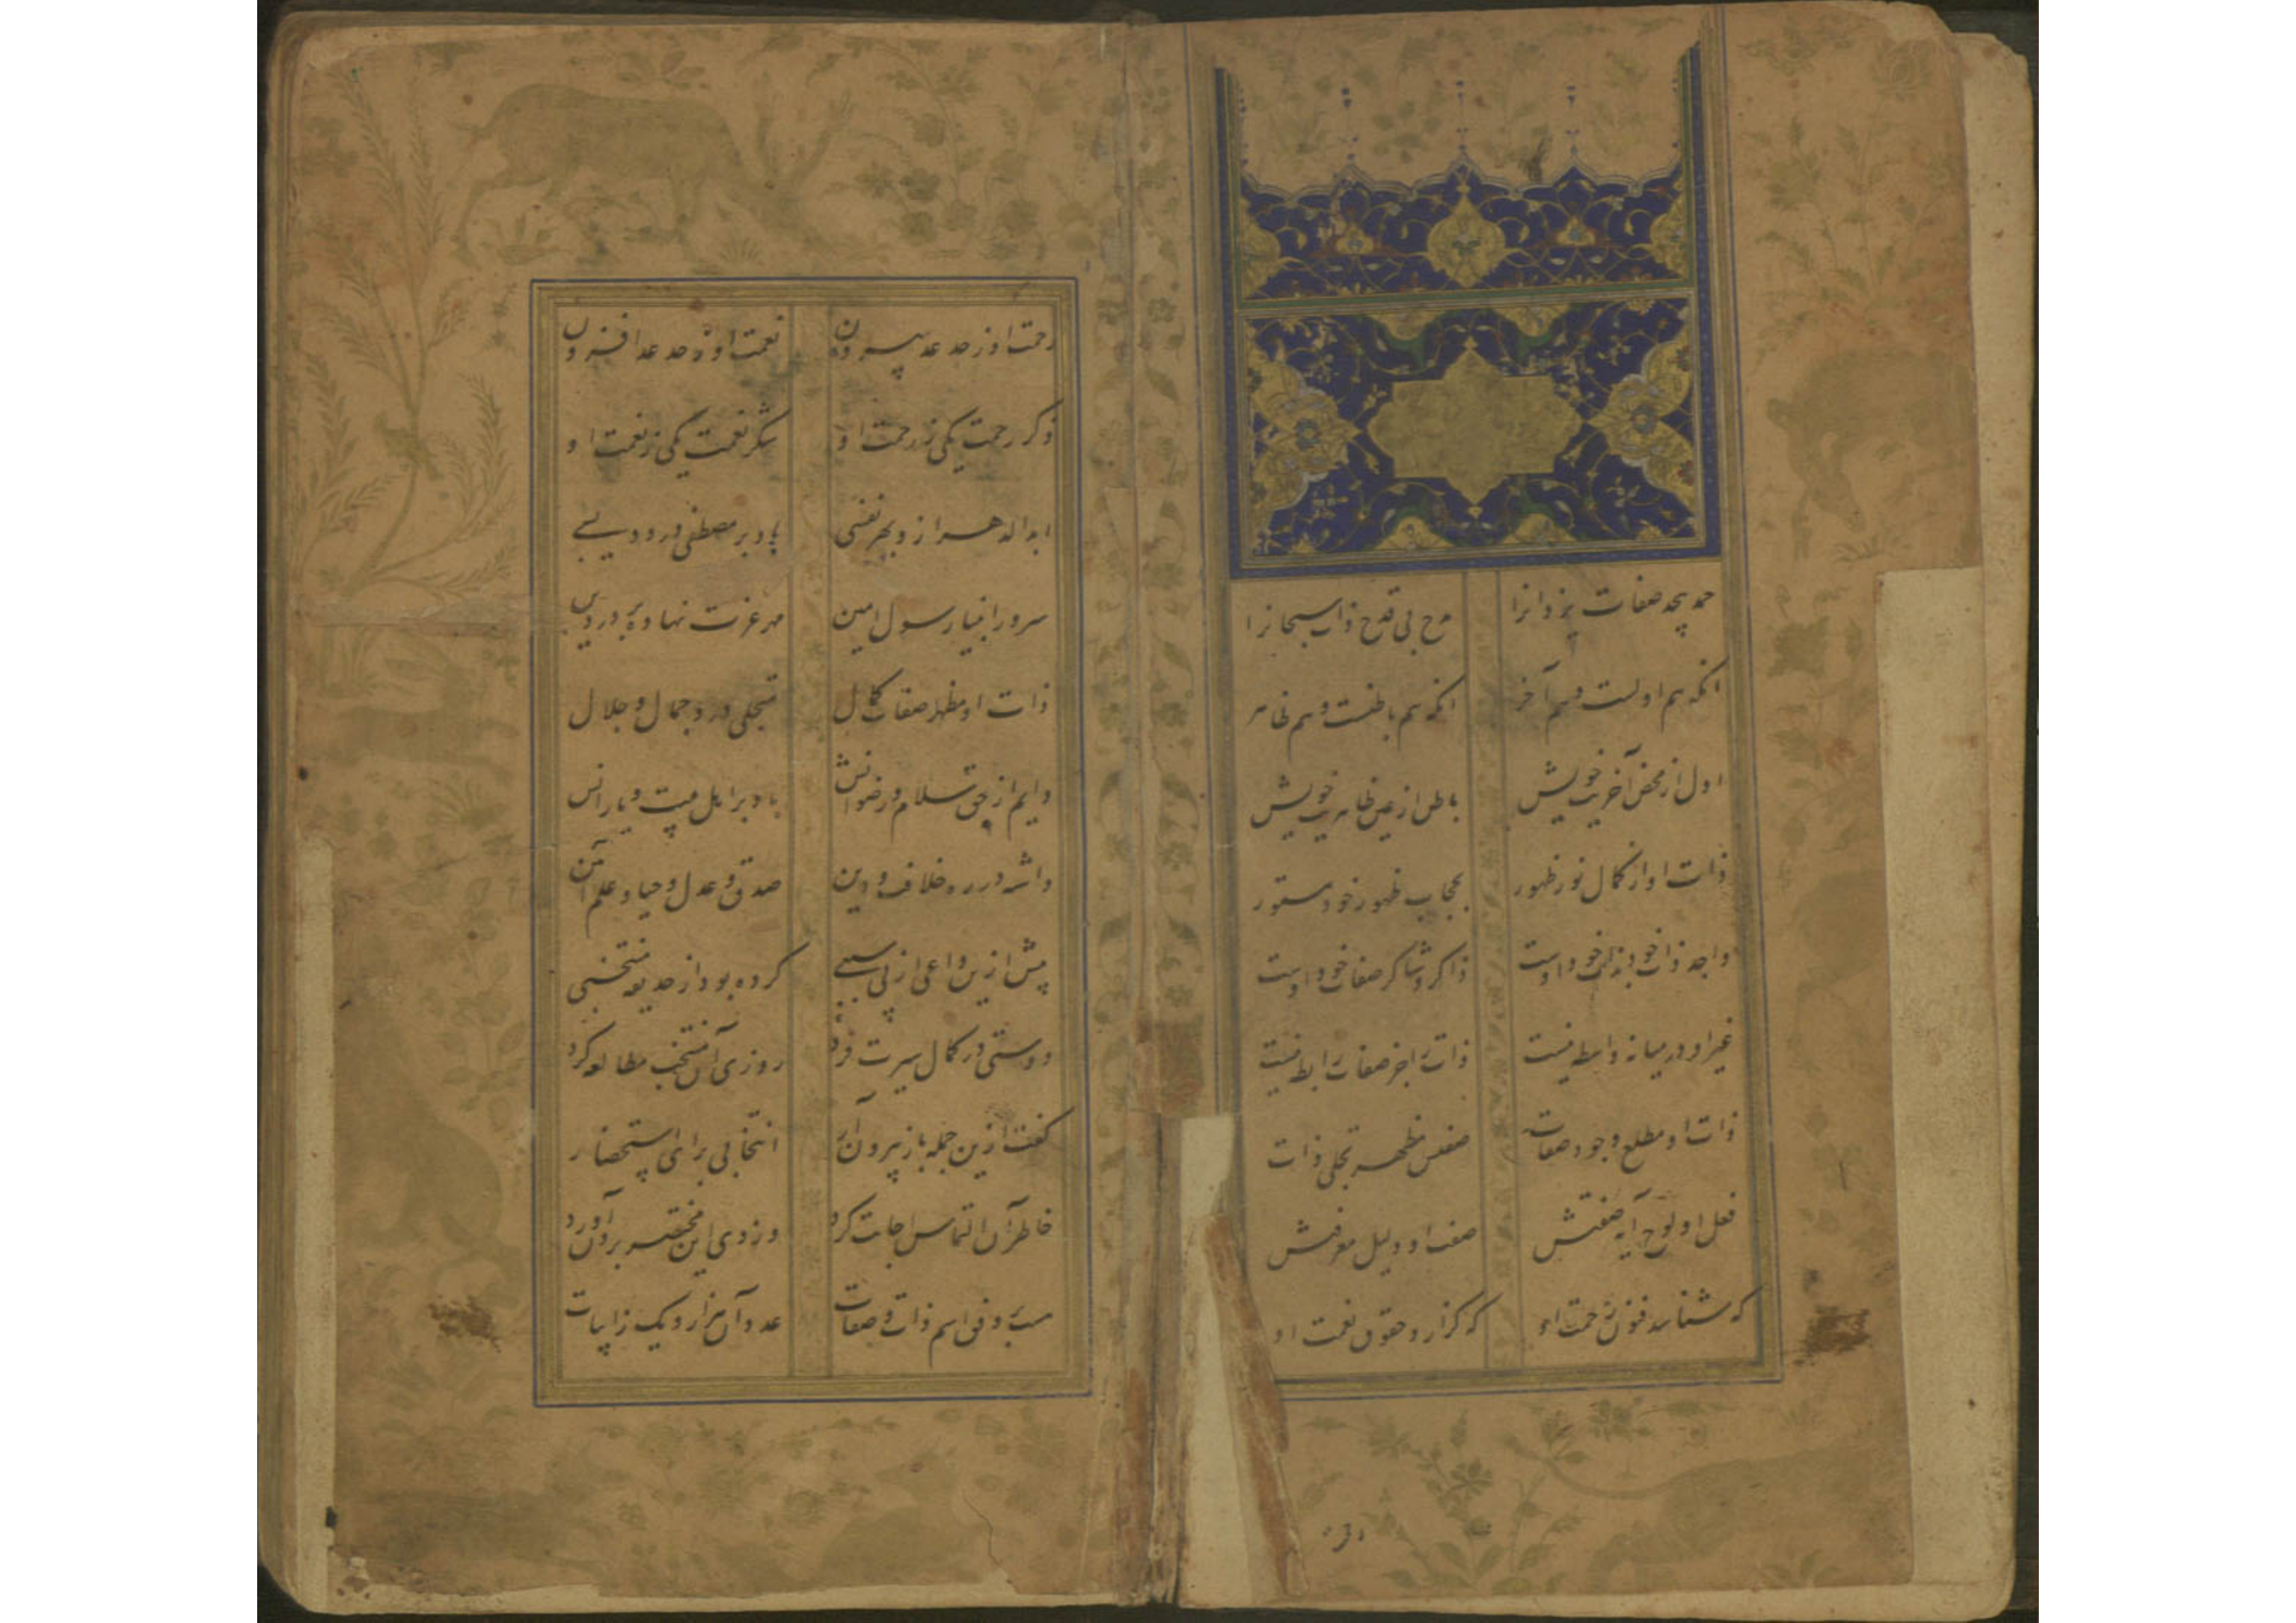 حمد بیحد صفات یزدانرا مدح بی قدح ذات سبحانرا
انکه هم اولست و هم آخر انکه هم باطنست و هم ظاهر
اول از محض آخریت خویش باطن از عین ظاهریت خویش
ذات او از کمال نور ظهور بحجاب ظهور خود مستور
واجد ذات خود بذات خود اوست ذاکر و شاکر صفات خود اوست
غیر او در میانه واسطه نیست ذات را جز صفات رابطه نیست
ذات او مطلع وجود صفات صفتش مظهر تجلی ذات
فعل او لوح آیه صفتش صفت او دلیل معرفتش
که شناسد فنون رحمت او که گزارد حقوق نعمت او
رحمت او ز حد عد بیرون نعمت او ز حد عد افزون
ذکر رحمت یکی ز رحمت او شکر نعمت یکی ز نعمت او
ابد الدهر از و بهر نفسی باد بر مصطفی درود بسی
سرور انبیا رسول امین مهر عزت نهاده بر در دین
ذات او مظهر صفات کمال متجلی درو جمال و جلال
دایم از حق سلام و رضوانش باد بر اهل بیت و یارانش
داشته در ره خلافت و دین صدق و عدل و حیا و علم آئین
پیش ازین داعی از پی سببی کرده بود از حدیقه منتخبی
دوستی در کمال سیرت فرد روزی آن منتخب مطالعه کرد
گفت ازین جمله باز بیرون آر انتخابی برای استحضار
خاطر آن التماس اجابت کرد وز وی این مختصر برون آورد
بر وفق اسم ذات و صفات عدد آن هزار و یک ز ابیات